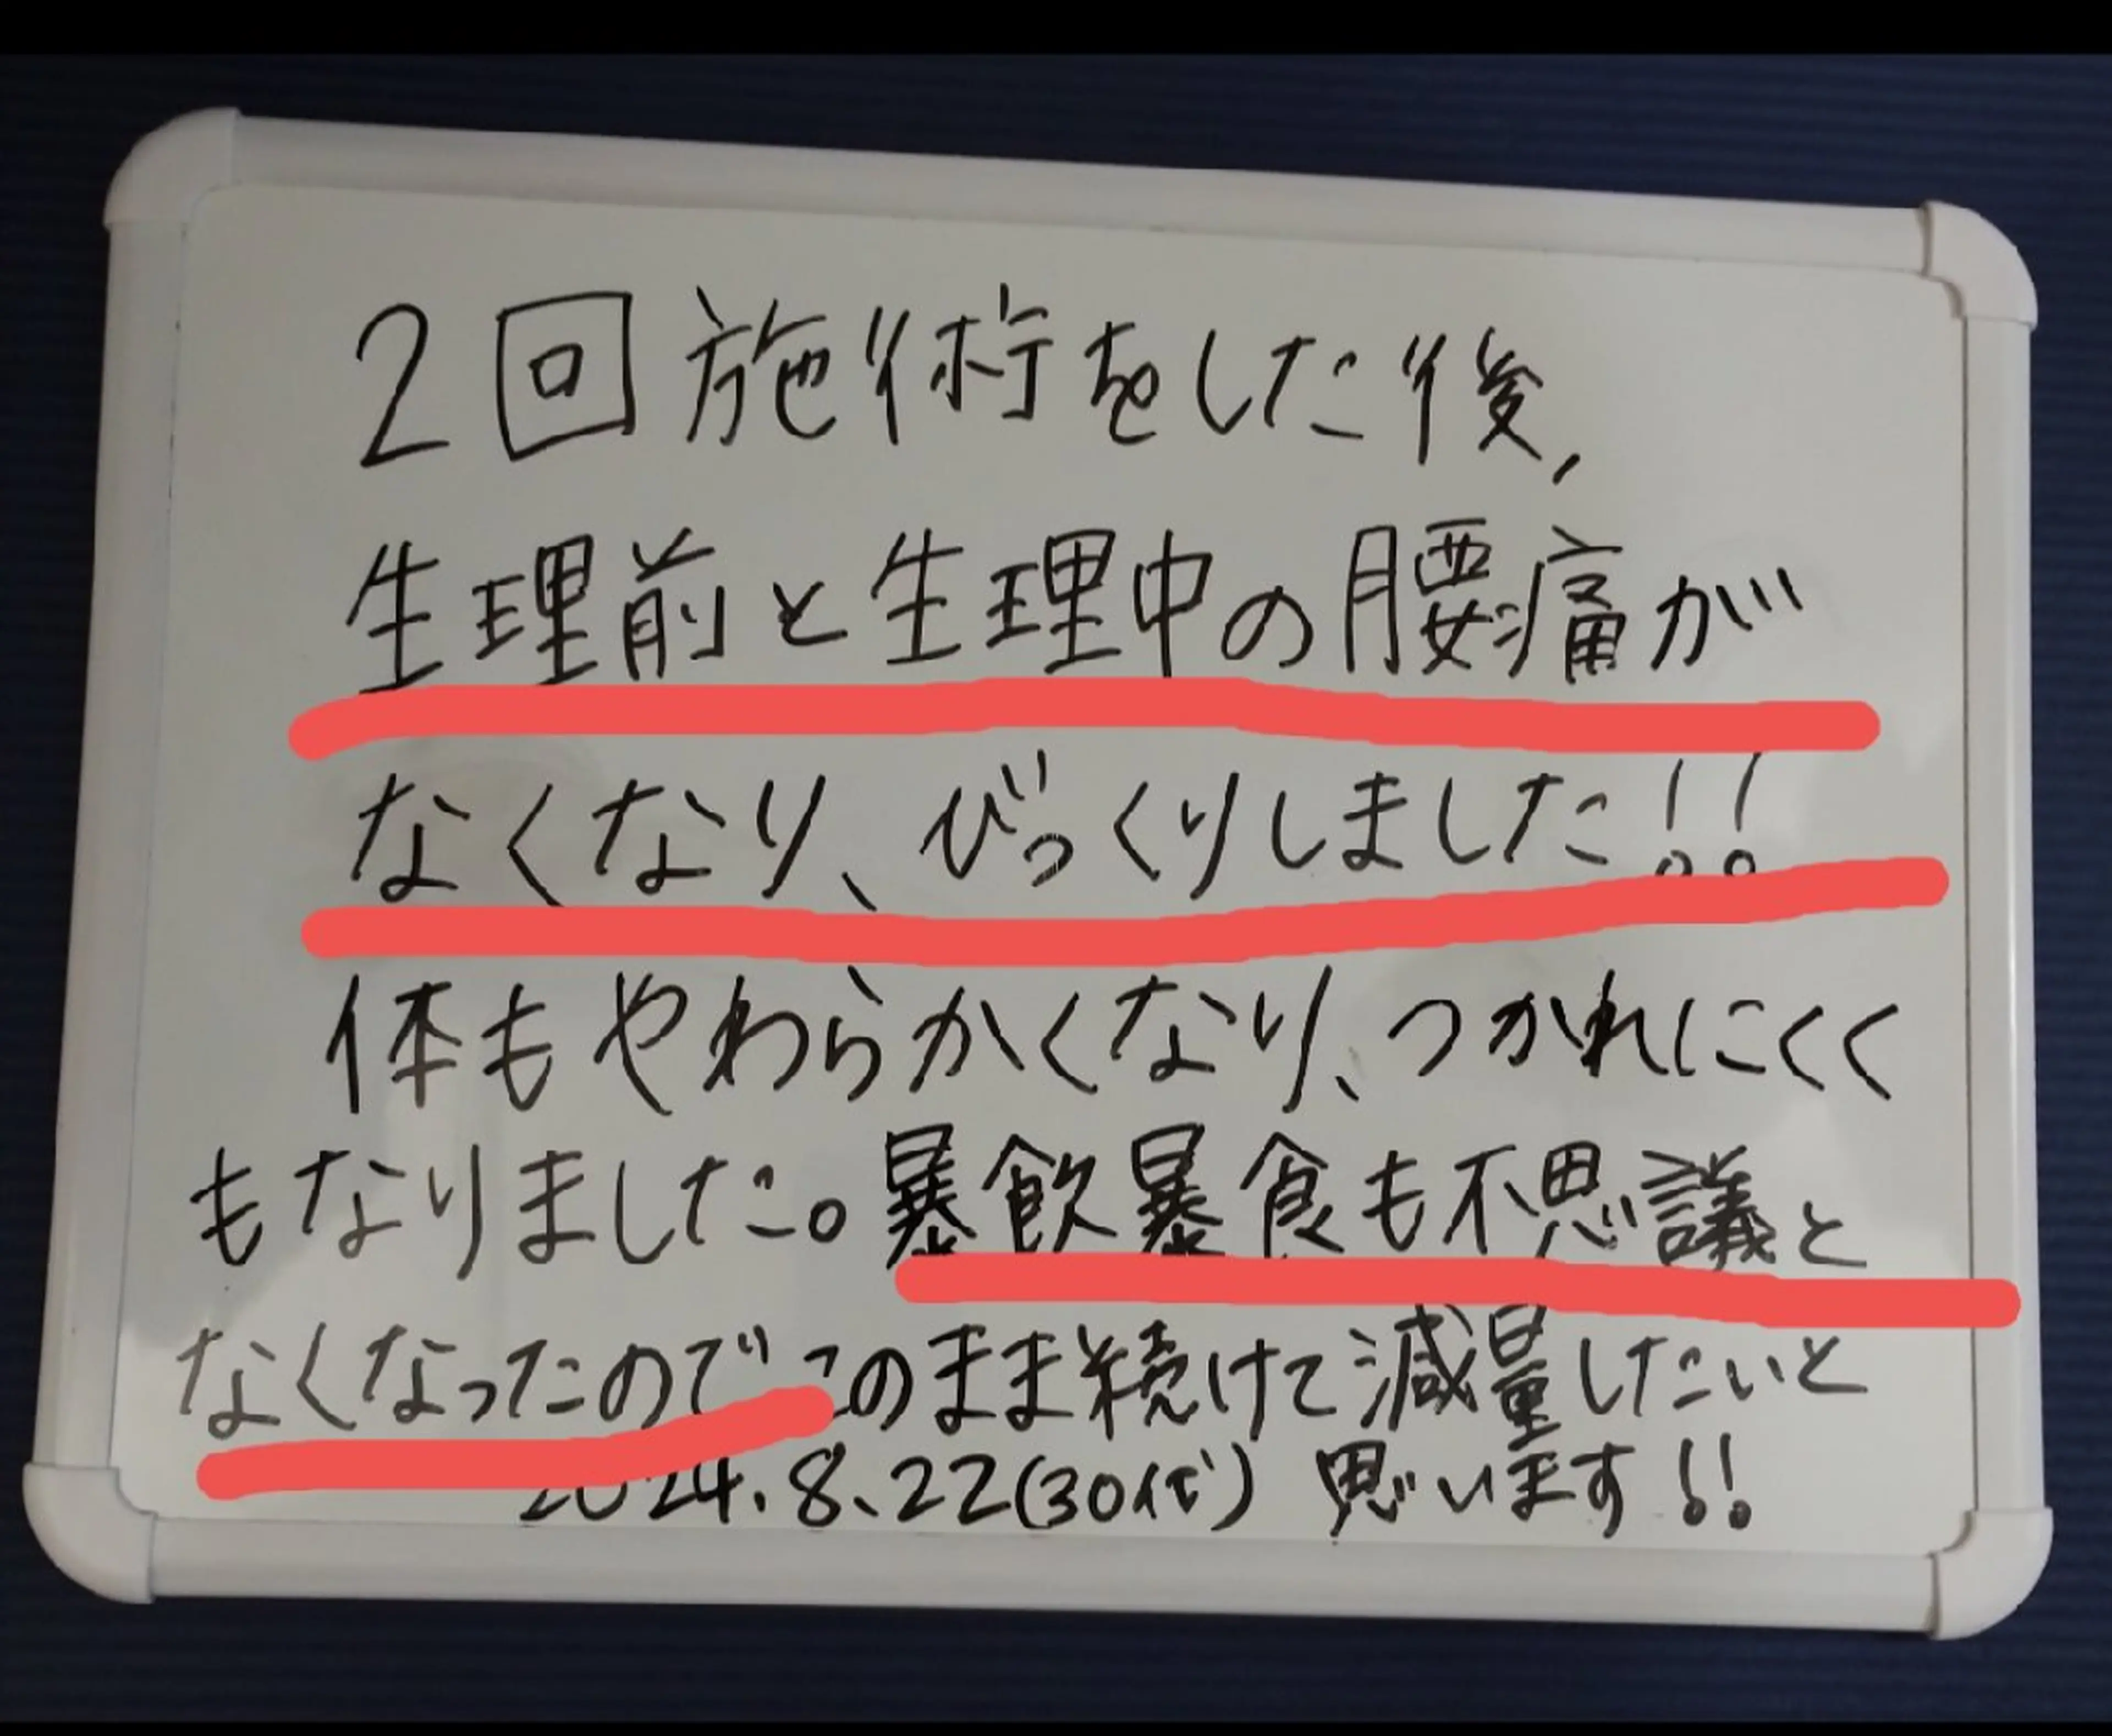 2回施術をした後,
生理前と生理中の腰痛が
なくなり、びっくりしました!!
体もやわらかくなり、つかれにくく
もなりました。暴飲暴食も不思議と
なくなったのでこのまま続けて減量したいと
2024.8.22(30代) 思います!!